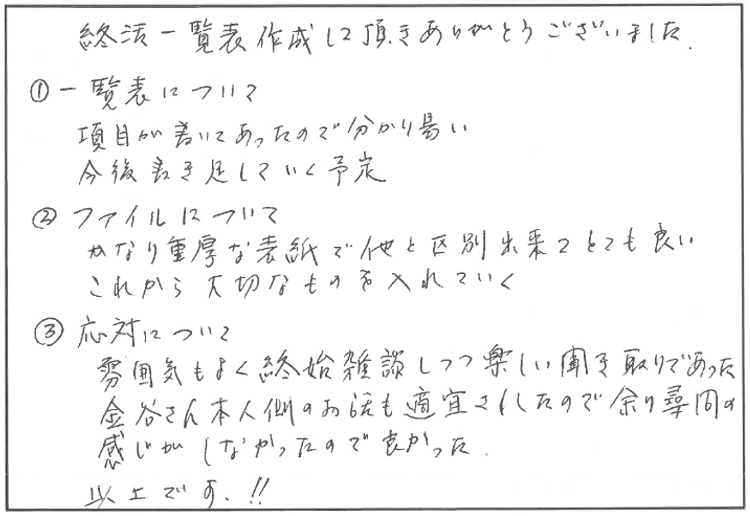 終活一覧表作成して頂きありがとうございました.
① 一覧表について
項目が書いてあったので分かり易い
今後書き足していく予定
② ファイルについて
かなり重厚な表紙で他と区別出来てとても良い
これから大切なものを入れていく
③ 応対について
雰囲気もよく終始雑談しつつ楽しい聞き取りであった
金谷さん本人側のお話も適宜されしたので余り尋問の
感じがしなかったので良かった.
以上です.!!